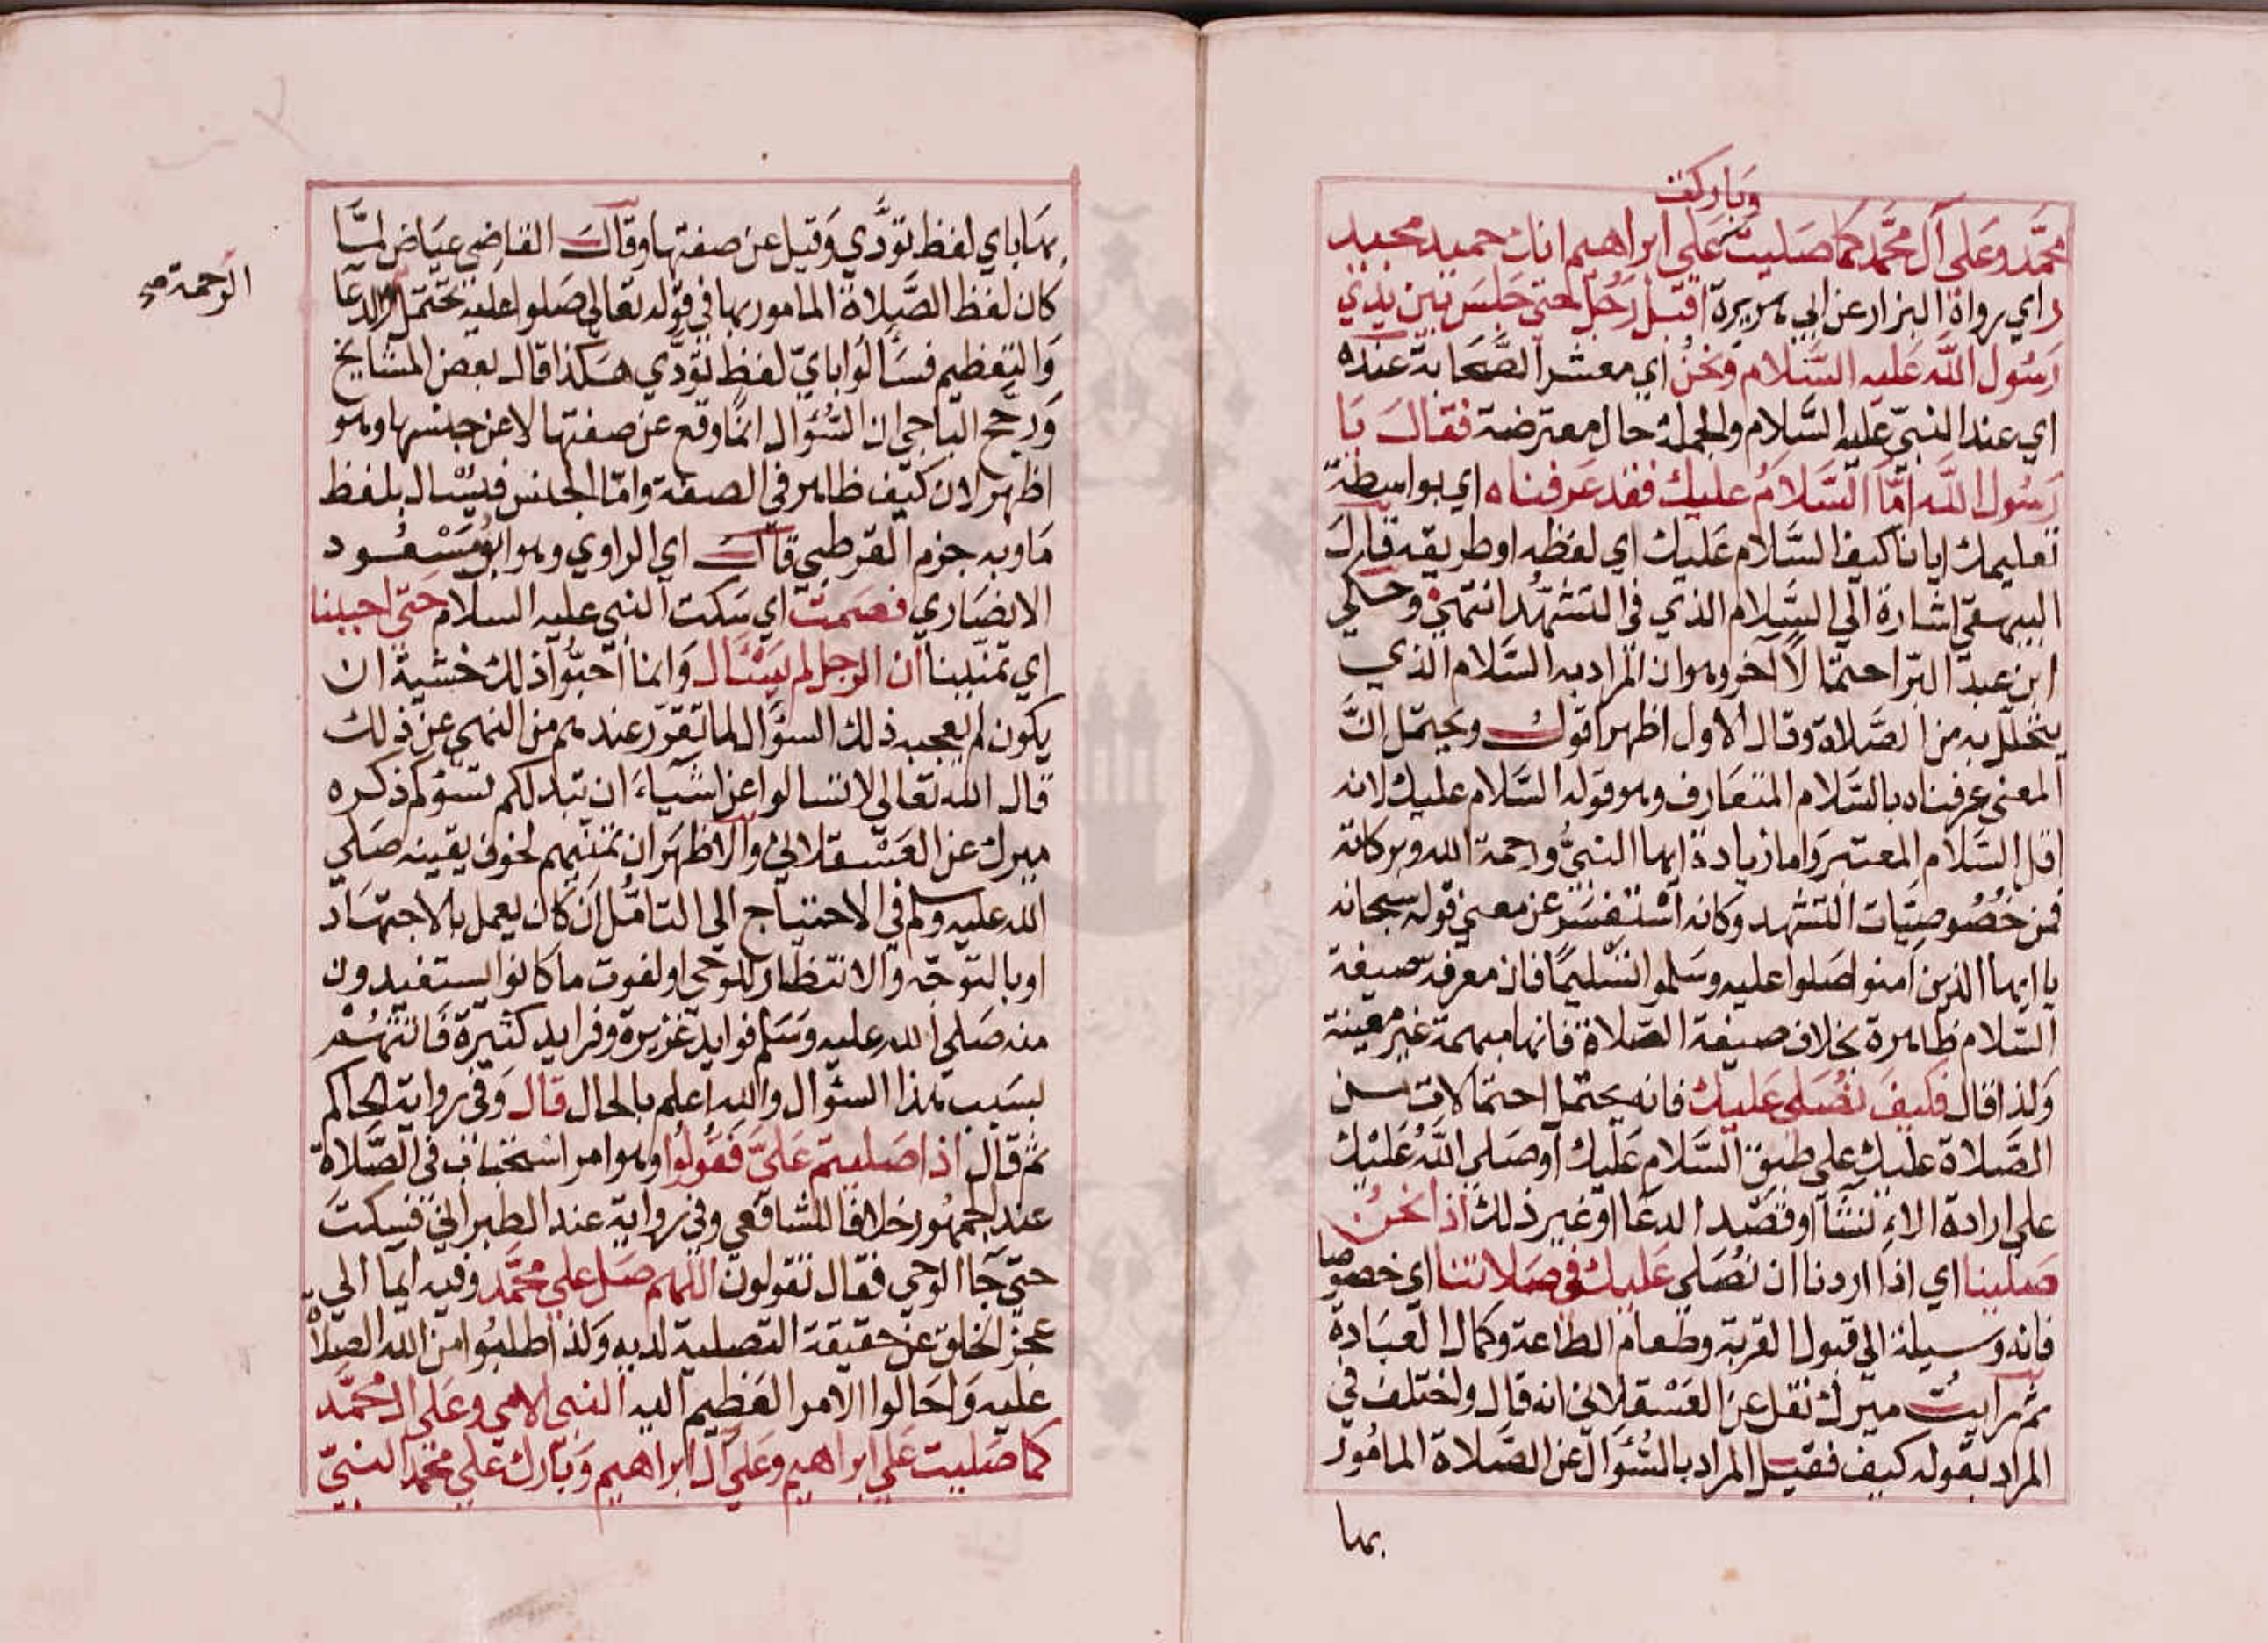 وباركت
محمد وعلى آل محمد كما صليت على ابراهيم انك حميد مجيد
ر اي رواه البزار عن ابي هريرة اقبل رجل حتى جلس بين يدي
رسول الله عليه السلام ونحن اي معشر الصحابة عنده
اي عند النبي عليه السلام والجملة حال معترضة فقال يا
رسول الله امّا السلام عليك فقد عرفناه اي بواسطة
تعليمك ايانا كيف السلام عليك اي لفظه او طريقه قال
البيهقي اشارة الي السلام الذي في التشهد انتهى وحكي
ابن عبد البر احتمالا آخر وهو ان المراد به السلام الذي
يتحلل به من الصلاة وقال الاول اظهر اقول ويحتمل ان
المعنى عرفناه بالسلام المتعارف وهو قوله السلام عليك لانه
اقل السلام المعتبر واما زيادة ايها النبي ورحمة الله وبركاته
فمن خصوصيات التشهد وكانه استفسر عن معنى قوله سبحانه
يا ايها الذين آمنوا صلوا عليه وسلموا تسليما فان معرفة صيغة
السلام ظاهرة بخلاف صيغة الصلاة فانها مبهمة غير معينة
ولذا قال فكيف نصلي عليك فانه يحتمل احتمالات من
الصلاة عليك على طبق السلام عليك او صلى الله عليك
على ارادة الانشآ او قصد الدعا او غير ذلك اذا نحن
صلينا اي اذا اردنا ان نصلي عليك في صلاتنا اي خصوصا
فانه وسيلة الي قبول القربة وطعام الطاعة وكمال العبادة
ثم رايت ميرك نقل عن العسقلاني انه قال واختلف في
المراد بقوله كيف فقيل المراد بالسؤال عن الصلاة المامور
بها
بها باي لفظ تؤدي وقيل عن صفتها وقال القاضي عياض لمّا
كان لفظ الصلاة المامور بها في قوله تعالى صلوا عليه تحتمل والدعا
الرحمة صح
والتعظيم فسألوا باي لفظ تؤدي هكذا قال بعض المشايخ
ورجح الباجي ان السؤال انما وقع عن صفتها لا عن جنسها وهو
اظهر لان كيف ظاهر في الصفة وامّا الجنس فيسئال بلفظ
ما وبه جزم القرطبي قال اي الراوي وهو ابو مسعود
الانصاري فصمت اي سكت النبي عليه السلام حتى احببنا
اي تمنينا ان الرجل لم يسئال وانما احبوا ذلك خشية ان
يكون لم يعجبه ذلك السؤال لما تقرر عندهم من النهي عن ذلك
قال الله تعالى لا تسالوا عن اشياء ان تبد لكم تسؤكم ذكره
ميرك عن العسقلاني والاظهر ان تمنيهم لخوف يقينه صلى
الله عليه وسلم في الاحتياج الي التامل ان كان يعمل بالاجتهاد
او بالتوجه والانتظار للوحي او لفوت ما كانوا يستفيدون
منه صلى الله عليه وسلم فوايد غزيرة وفرايد كثيرة فاتتهم
بسبب هذا السؤال والله اعلم بالحال قال وفي رواية الحاكم
ثم قال اذا صليتم عليّ فقولوا وهو امر استحباب في الصلاة
عند الجمهور خلافا للشافعي وفي رواية عند الطبراني فسكت
حتى جآ الوحي فقال تقولون اللهم صل على محمد وفيه ايمآ الي
عجز الخلق عن حقيقة التصلية لديه ولذا طلبوا من الله الصلاة
عليه واحالوا الامر العظيم اليه النبي الامي وعلى آل محمد
كما صليت على ابراهيم وعلى آل ابراهيم وبارك على محمد النبي